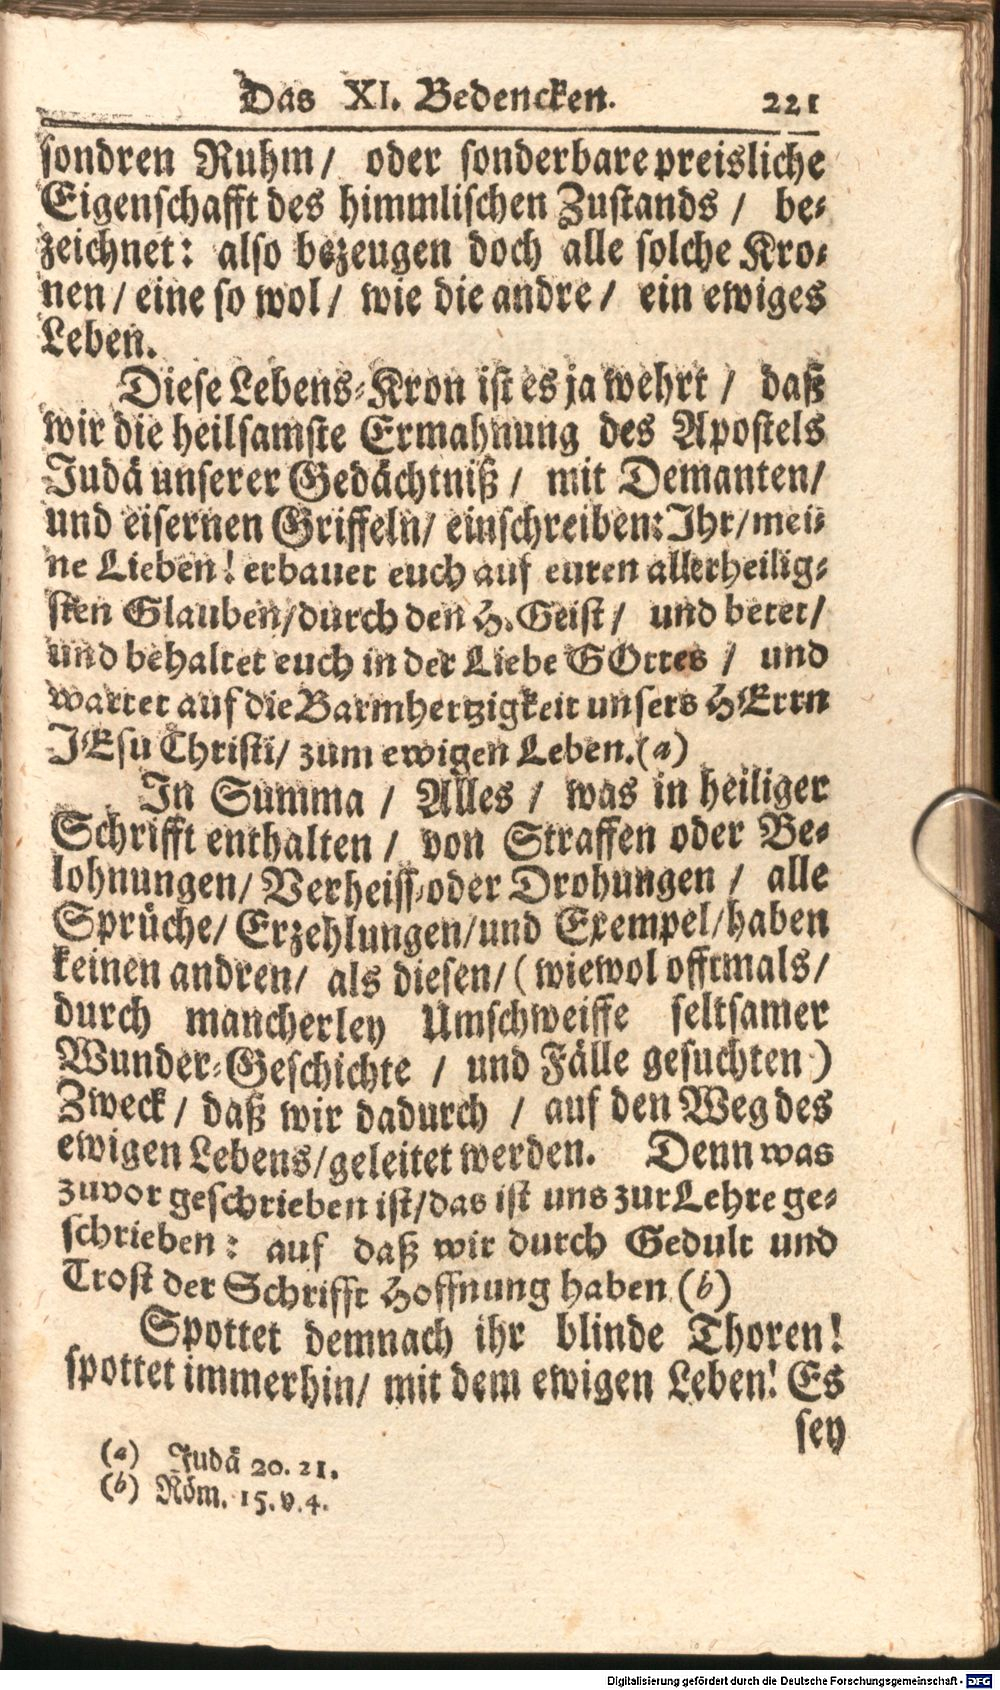 Das XI. Bedencken. 221
sondren Ruhm/ oder sonderbare preisliche
Eigenschafft des himmlischen Zustands / be-
zeichnet: also bezeugen doch alle solche Kro-
nen / eine so wol / wie die andre / ein ewiges
Leben.
Diese Lebens-Kron ist es ja wehrt / daß
wir die heilsamste Ermahnung des Apostels
Judä unserer Gedächtniß / mit Demanten/
und eisernen Griffeln/ einschreiben: Ihr/mei-
ne Lieben! erbauet euch auf euren allerheilig-
sten Glauben/durch den H. Geist / und betet/
und behaltet euch in der Liebe GOttes / und
wartet auf die Barmhertzigkeit unsers HErrn
JEsu Christi/ zum ewigen Leben.(a)
In Summa / Alles / was in heiliger
Schrifft enthalten / von Straffen oder Be-
lohnungen/ Verheiss-oder Drohungen / alle
Sprüche/ Erzehlungen/und Exempel/haben
keinen andren/ als diesen/ (wiewol offtmals/
durch mancherley Umschweiffe seltsamer
Wunder-Geschichte / und Fälle gesuchten)
Zweck / daß wir dadurch / auf den Weg des
ewigen Lebens/geleitet werden. Denn was
zuvor geschrieben ist/das ist uns zur Lehre ge-
schrieben: auf daß wir durch Gedult und
Trost der Schrifft Hoffnung haben (b)
Spottet demnach ihr blinde Thoren!
spottet immerhin/ mit dem ewigen Leben! Es
sey
(a) Judä 20. 21.
(b) Röm. 15. v. 4.
Digitalisierung gefördert durch die Deutsche Forschungsgemeinschaft - DFG